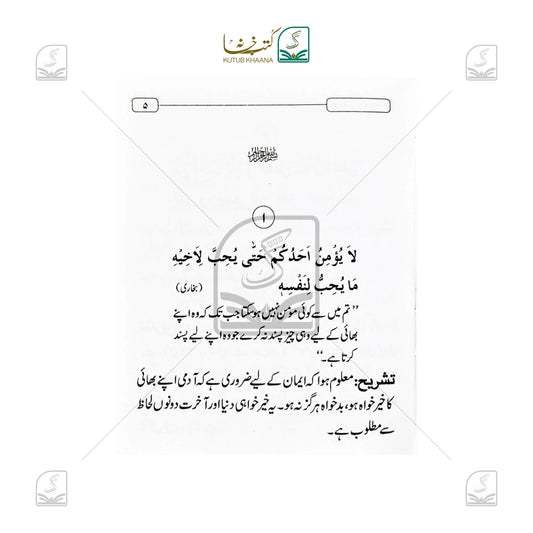 کتب خانہ
KUTUB KHAANA
۵
۱
لَا يُؤْمِنُ اَحَدُكُمْ حَتّٰى يُحِبَّ لِاَخِيْهِ
مَا يُحِبُّ لِنَفْسِهٖ (بخاری)
’’تم میں سے کوئی مومن نہیں ہوسکتا جب تک کہ وہ اپنے
بھائی کے لیے وہی چیز پسند نہ کرے جو وہ اپنے لیے پسند
کرتا ہے۔‘‘
تشریح: معلوم ہوا کہ ایمان کے لیے ضروری ہے کہ آدمی اپنے بھائی
کا خیر خواہ ہو، بدخواہ ہرگز نہ ہو۔ یہ خیر خواہی دنیا اور آخرت دونوں لحاظ
سے مطلوب ہے۔